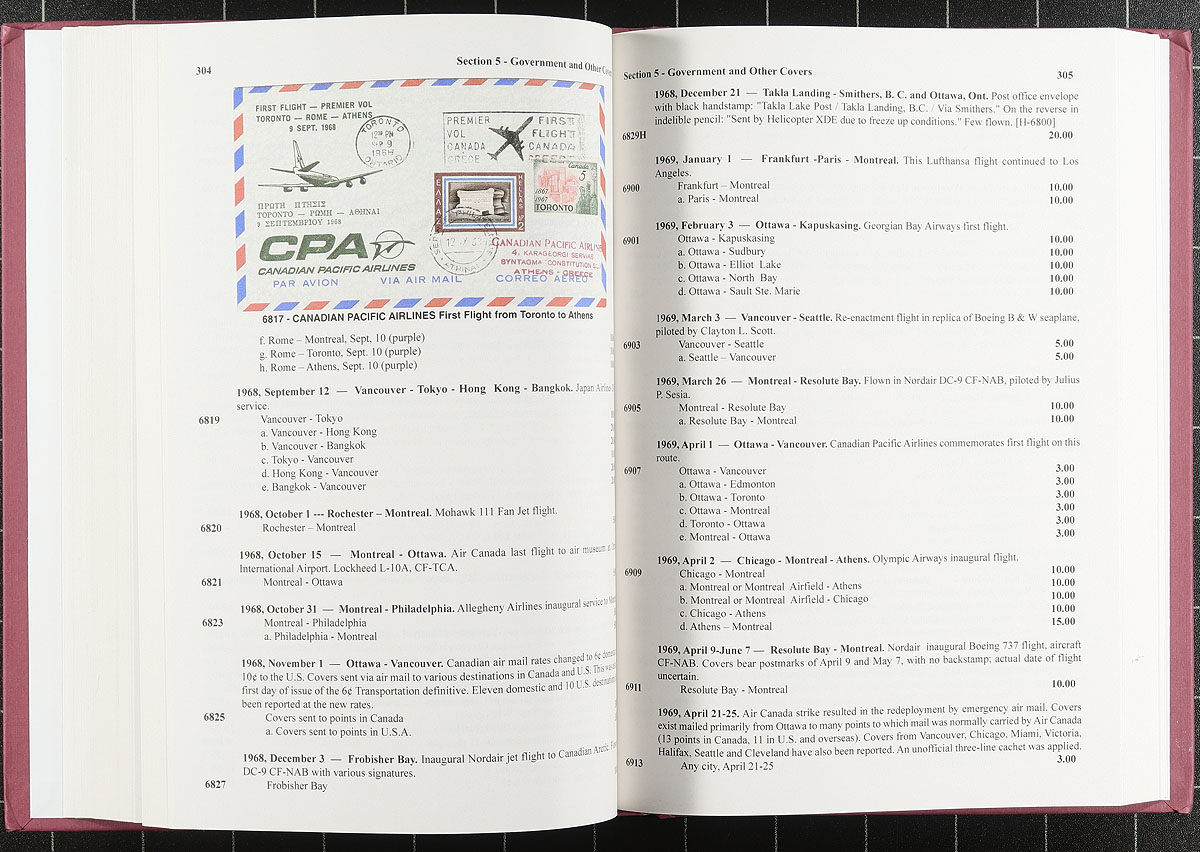 304
Section 5 - Government and Other
FIRST FLIGHT — PREMIER VOL
TORONTO — ROME — ATHENS
9 SEPT. 1968
TORONTO
PM
9
1968
ONTARIO
PREMIER FIRST
VOL FLIGHT
CANADA CANADA
GRECE GREECE
Canada
5
1867
1967
TORONTO
ΕΛΛΑΣ
HELLAS
2
ΠΡΩΤΗ ΠΤΗΣΙΣ
ΤΟΡΟΝΤΟ — ΡΩΜΗ — ΑΘΗΝΑΙ
9 ΣΕΠΤΕΜΒΡΙΟΥ 1968
CPA
CANADIAN PACIFIC AIRLINES
CANADIAN PACIFIC AIRLINE
4, KARAGEORGI SERVIAS
SYNTAGMA (CONSTITUTION
ATHENS - GREECE
PAR AVION VIA AIR MAIL CORREO AEREO
6817 - CANADIAN PACIFIC AIRLINES First Flight from Toronto to Athens
f. Rome – Montreal, Sept, 10 (purple)
g. Rome – Toronto, Sept. 10 (purple)
h. Rome – Athens, Sept. 10 (purple)
1968, September 12 — Vancouver - Tokyo - Hong Kong - Bangkok. Japan
service.
6819 Vancouver - Tokyo
a. Vancouver - Hong Kong
b. Vancouver - Bangkok
c. Tokyo - Vancouver
d. Hong Kong - Vancouver
e. Bangkok - Vancouver
1968, October 1 --- Rochester – Montreal. Mohawk 111 Fan Jet flight.
6820 Rochester – Montreal
1968, October 15 — Montreal - Ottawa. Air Canada last flight to air museum
International Airport. Lockheed L-10A, CF-TCA.
6821 Montreal - Ottawa
1968, October 31 — Montreal - Philadelphia. Allegheny Airlines inaugural service to
6823 Montreal - Philadelphia
a. Philadelphia - Montreal
1968, November 1 — Ottawa - Vancouver. Canadian air mail rates changed to 6¢
10¢ to the U.S. Covers sent via air mail to various destinations in Canada and U.S. This
first day of issue of the 6¢ Transportation definitive. Eleven domestic and 10 U.S.
been reported at the new rates.
6825 Covers sent to points in Canada
a. Covers sent to points in U.S.A.
1968, December 3 — Frobisher Bay. Inaugural Nordair jet flight to Canadian Arctic.
DC-9 CF-NAB with various signatures.
6827 Frobisher Bay
Section 5 - Government and Other Covers
305
1968, December 21 — Takla Landing - Smithers, B. C. and Ottawa, Ont. Post office envelope
with black handstamp: "Takla Lake Post / Takla Landing, B.C. / Via Smithers." On the reverse in
indelible pencil: "Sent by Helicopter XDE due to freeze up conditions." Few flown. [H-6800]
6829H 20.00
1969, January 1 — Frankfurt -Paris - Montreal. This Lufthansa flight continued to Los
Angeles.
6900 Frankfurt – Montreal 10.00
a. Paris - Montreal 10.00
1969, February 3 — Ottawa - Kapuskasing. Georgian Bay Airways first flight.
6901 Ottawa - Kapuskasing 10.00
a. Ottawa - Sudbury 10.00
b. Ottawa - Elliot Lake 10.00
c. Ottawa - North Bay 10.00
d. Ottawa - Sault Ste. Marie 10.00
1969, March 3 — Vancouver - Seattle. Re-enactment flight in replica of Boeing B & W seaplane,
piloted by Clayton L. Scott.
6903 Vancouver - Seattle 5.00
a. Seattle – Vancouver 5.00
1969, March 26 — Montreal - Resolute Bay. Flown in Nordair DC-9 CF-NAB, piloted by Julius
P. Sesia.
6905 Montreal - Resolute Bay 10.00
a. Resolute Bay - Montreal 10.00
1969, April 1 — Ottawa - Vancouver. Canadian Pacific Airlines commemorates first flight on this
route.
6907 Ottawa - Vancouver 3.00
a. Ottawa - Edmonton 3.00
b. Ottawa - Toronto 3.00
c. Ottawa - Montreal 3.00
d. Toronto - Ottawa 3.00
e. Montreal - Ottawa 3.00
1969, April 2 — Chicago - Montreal - Athens. Olympic Airways inaugural flight.
6909 Chicago - Montreal 10.00
a. Montreal or Montreal Airfield - Athens 10.00
b. Montreal or Montreal Airfield - Chicago 10.00
c. Chicago - Athens 10.00
d. Athens – Montreal 15.00
1969, April 9-June 7 — Resolute Bay - Montreal. Nordair inaugural Boeing 737 flight, aircraft
CF-NAB. Covers bear postmarks of April 9 and May 7, with no backstamp; actual date of flight
uncertain.
6911 Resolute Bay - Montreal 10.00
1969, April 21-25. Air Canada strike resulted in the redeployment by emergency air mail. Covers
exist mailed primarily from Ottawa to many points to which mail was normally carried by Air Canada
(13 points in Canada, 11 in U.S. and overseas). Covers from Vancouver, Chicago, Miami, Victoria,
Halifax, Seattle and Cleveland have also been reported. An unofficial three-line cachet was applied.
6913 Any city, April 21-25 3.00